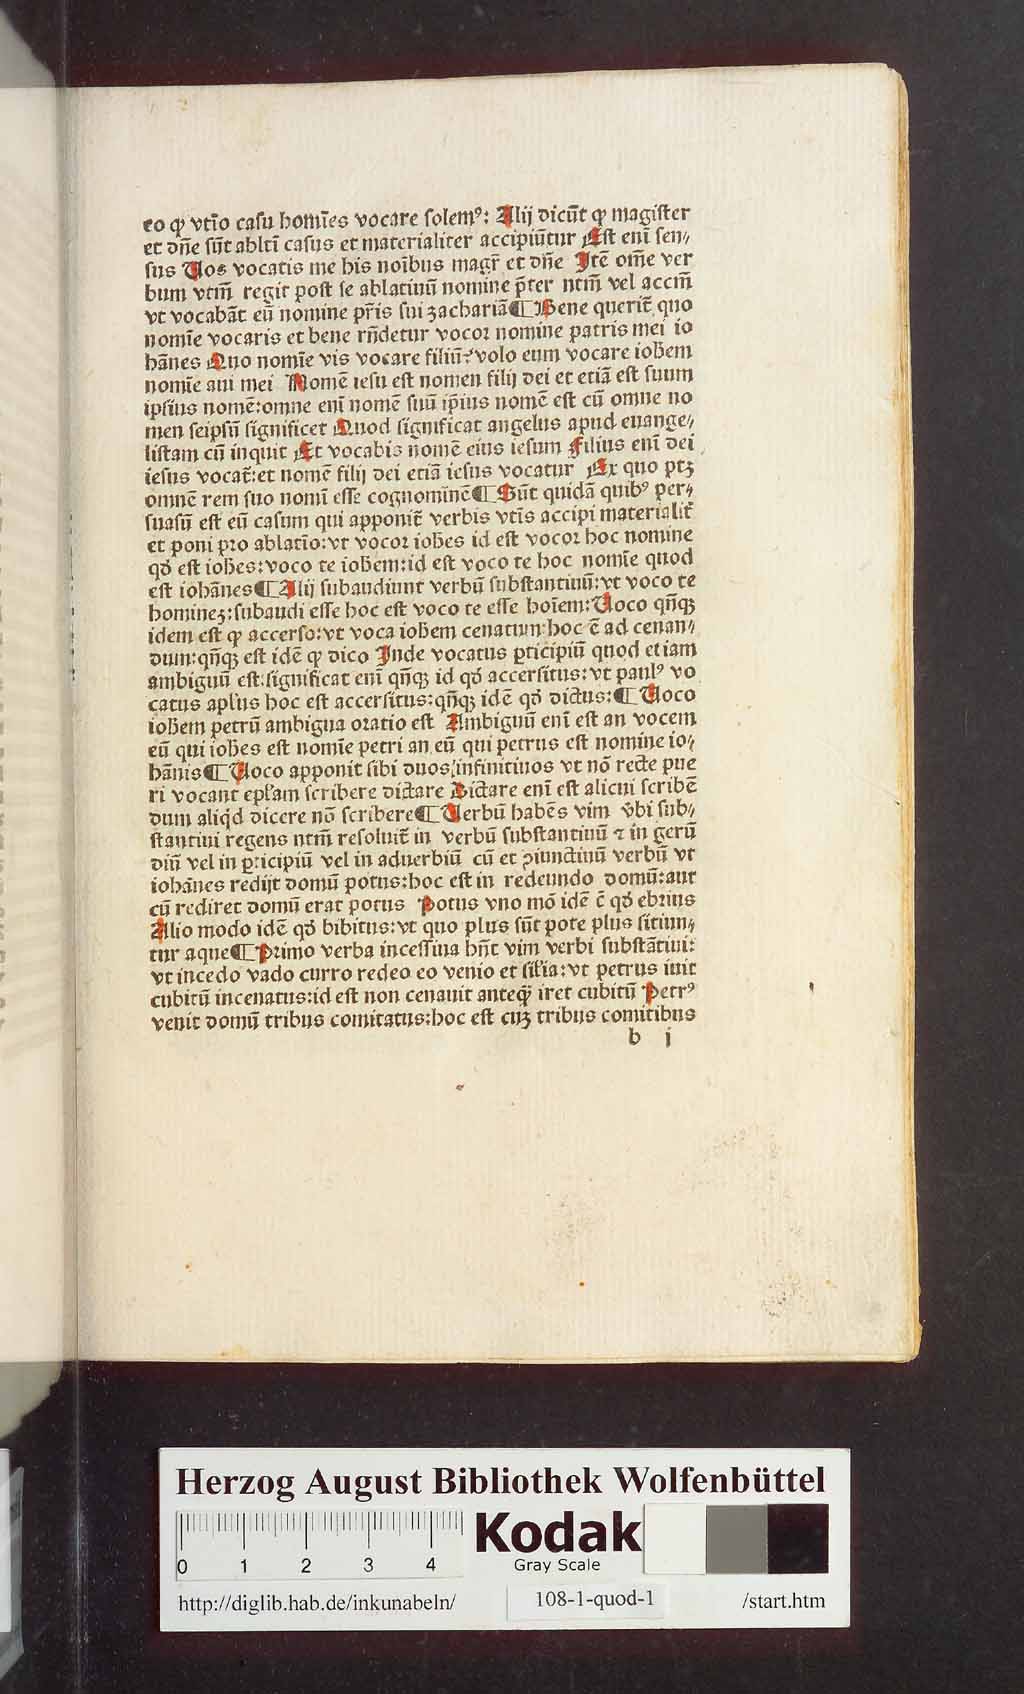 eo ꝙ vtĩo casu homĩes vocare solemꝰ: Alij dicũt ꝙ magister
et dñe sũt abltĩ casus et materialiter accipiũtur Est enĩ sen⸗
sus Uos vocatis me his noĩbus magr̃ et dñe Itẽ om̃e ver
bum vtm̃ regit post se ablatiuũ nomine p̃ter ntm̃ vel accm̃
vt vocabãt eũ nomine pr̃is sui zachariã ¶ Bene querit̃ quo
nomĩe vocaris et bene rñdetur vocor nomine patris mei io
hãnes Quo nomĩe vis vocare filiũ? volo eum vocare iohem
nomĩe aui mei Nomẽ iesu est nomen filij dei et etiã est suum
ipsius nomẽ: omne enĩ nomẽ suũ ip̃ius nomẽ est cũ omne no
men seipsũ significet Quod significat angelus apud euange⸗
listam cũ inquit Et vocabis nomẽ eius iesum Filius enĩ dei
iesus vocat̃: et nomẽ filij dei etiã iesus vocatur Ex quo ptꝫ
omnẽ rem suo nomĩ esse cognominẽ ¶ Sũt quidã quibꝰ per⸗
suasũ est eũ casum qui apponit̃ verbis vtĩs accipi materialit̃
et poni pro ablatĩo: vt vocor iohes id est vocor hoc nomine
qd̃ est iohes: voco te iohem: id est voco te hoc nomĩe quod
est iohãnes ¶ Alij subaudiunt verbũ substantiuũ: vt voco te
homineꝫ: subaudi esse hoc est voco te esse hoĩem: Uoco qñqꝫ
idem est ꝙ accerso: vt voca iohem cenatum: hoc ẽ ad cenan⸗
dum: qñqꝫ est idẽ ꝙ dico Inde vocatus ꝑticipiũ quod etiam
ambiguũ est: significat enĩ qñqꝫ id qd̃ accersitus: vt paulꝰ vo
catus apl̃us hoc est accersitus: qñqꝫ idẽ qd̃ dictus: ¶ Uoco
iohem petrũ ambigua oratio est Ambiguũ enĩ est an vocem
eũ qui iohes est nomĩe petri an eũ qui petrus est nomine io⸗
hãnis ¶ Uoco apponit sibi duos infinitiuos vt nõ recte pue
ri vocant epl̃am scribere dictare Dictare enĩ est alicui scribẽ
dum aliqd̃ dicere nõ scribere ¶ Uerbũ habẽs vim v̾bi sub⸗
stantiui regens ntm̃ resoluit̃ in verbũ substantiuũ ⁊ in gerũ
diũ vel in ꝑticipiũ vel in aduerbiũ cũ et ꝯiunctiuũ verbũ vt
iohãnes redijt domũ potus: hoc est in redeundo domũ: aut
cũ rediret domũ erat potus Potus vno mõ idẽ ẽ qd̃ ebrius
Alio modo idẽ qd̃ bibitus: vt quo plus sũt pote plus sitiun⸗
tur aque ¶ Primo verba incessiua hñt vim verbi substãtiui:
vt incedo vado curro redeo eo venio et sil̃ia: vt petrus iuit
cubitũ incenatus: id est non cenauit anteq̃ iret cubitũ Petrꝰ
venit domũ tribus comitatus: hoc est cuꝫ tribus comitibus
b j
Herzog August Bibliothek Wolfenbüttel
0 1 2 3 4
Kodak
Gray Scale
http://diglib.hab.de/inkunabeln/ 108-1-quod-1 /start.htm